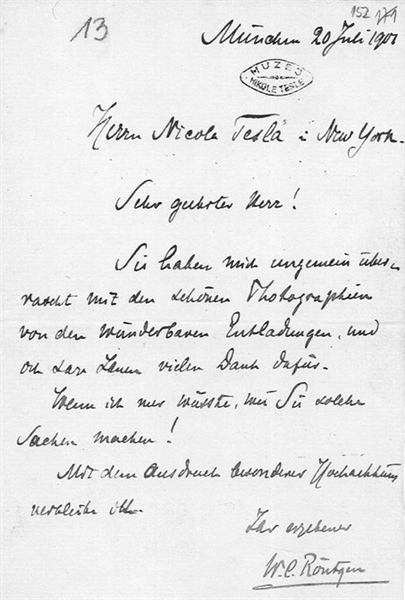 13
152 179
München 20 Juli 1901
MUZEJ
NIKOLE TESLE
Herrn Nicola Tesla in New York.
Sehr geehrter Herr!
Sie haben mich ungemein über-
rascht mit den schönen Photographien
von den wunderbaren Entladungen, und
ich sage Ihnen vielen Dank dafür.
Wenn ich nur wüsste, wie Sie solche
Sachen machen!
Mit dem Ausdruck besonderer Hochachtung
verbleibe ich
Ihr ergebener
W. C. Röntgen